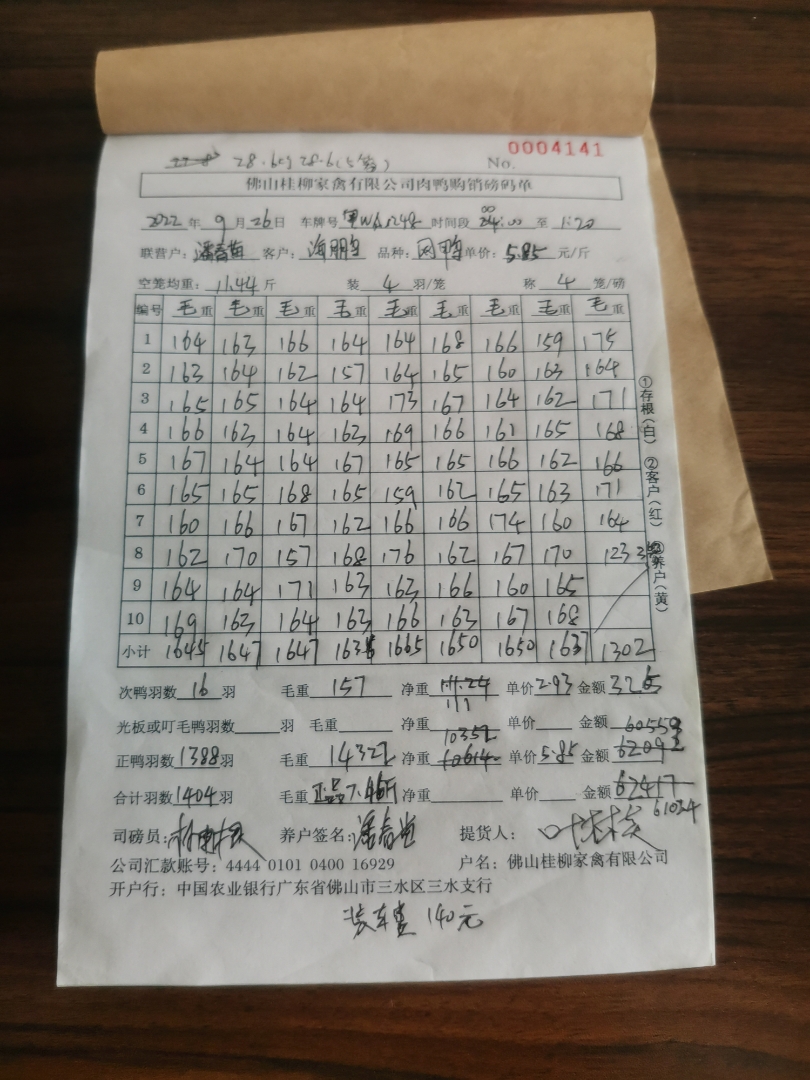 28.6
No. 0004141
佛山桂柳家禽有限公司肉鸭购销磅码单
2022年 9月26日 车牌号 时间段 00 24:00 至 1:20
联营户: 客户: 海鹏 品种: 单价: 5.85 元/斤
空笼均重: 11.44 斤 装 4 羽/笼 称 4 笼/磅
编号 毛重 毛重 毛重 毛重 毛重 毛重 毛重 毛重 毛重
1 164 163 166 164 164 168 166 159 175
2 163 164 162 157 164 165 160 163 164
3 165 165 164 164 173 167 164 162 171
4 166 163 164 163 169 166 161 165 168
5 167 164 164 167 165 165 166 162 166
6 165 165 168 165 159 162 165 163 171
7 160 166 167 162 166 166 174 160 164
8 162 170 157 168 176 162 167 170 123
9 164 164 171 163 163 166 160 165
10 169 163 164 163 166 163 167 168
小计 1645 1647 1647 1665 1650 1650 1637 1302
①存根(白) ②客户(红) ③养户(黄)
次鸭羽数 16 羽 毛重 157 净重 111 单价 2.93 金额
光板或叮毛鸭羽数 羽 毛重 净重 单价 金额
正鸭羽数 1388 羽 毛重 14322 净重 10352 单价 5.85 金额
合计羽数 1404 羽 毛重 净重 单价 金额 62417
61034
司磅员: 养户签名: 提货人:
公司汇款账号: 4444 0101 0400 16929 户名: 佛山桂柳家禽有限公司
开户行: 中国农业银行广东省佛山市三水区三水支行
装车费 140元